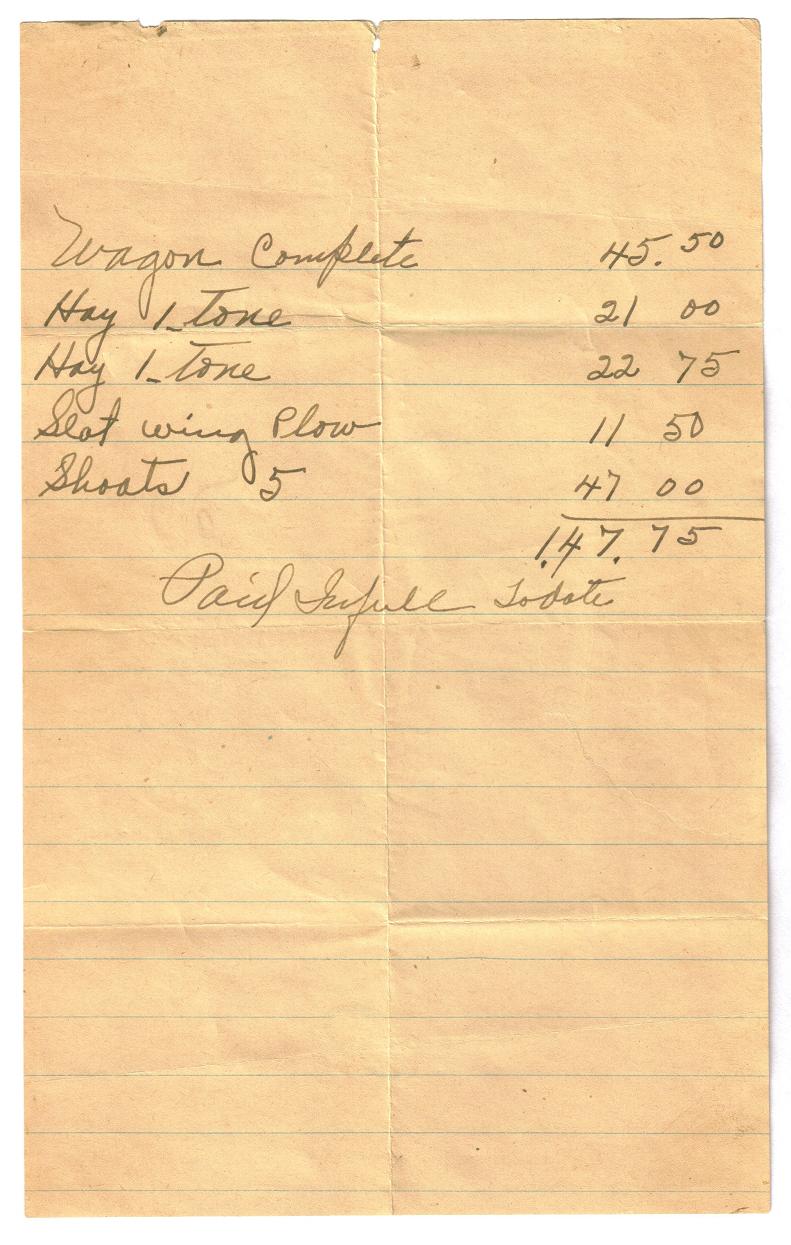 Wagon Complete 45.50
Hay 1 Tone 21 00
Hay 1 Tone 22 75
Slat wing Plow 11 50
Shoats 5 47 00
147.75
Paid Infull Todate